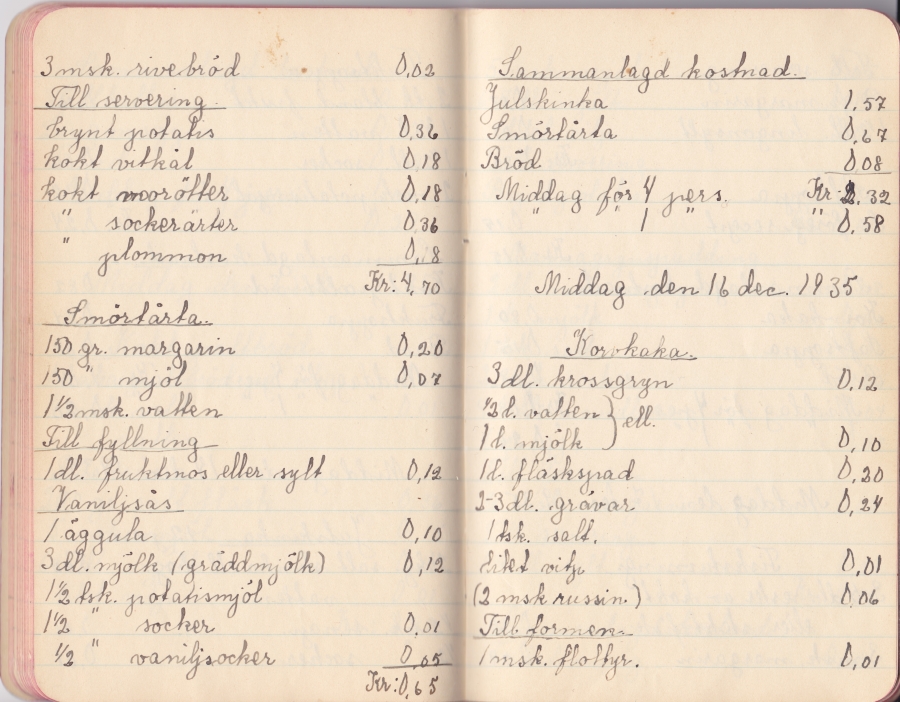 3 msk. rivebröd 0,02
Till servering
brynt potatis 0,36
kokt vitkål 0,18
kokt morötter 0,18
" sockerärter 0,36
" plommon 0,18
Kr: 4,70
Smörtårta.
150 gr. margarin 0,20
150 " mjöl 0,07
1 1/2 msk. vatten
Till fyllning
1 dl. fruktmos eller sylt 0,12
Vaniljsås
1 äggula 0,10
3 dl. mjölk (gräddmjölk) 0,12
1 1/2 tsk. potatismjöl
1 1/2 " socker 0,01
1/2 " vaniljsocker 0,05
Kr: 0,65
Sammanlagd kostnad.
Julskinka 1.57
Smörtårta 0,67
Bröd 0,08
Middag för 4 pers. Kr: 2.32
" " 1 " " 0.58
Middag den 16 dec. 1935
Korvkaka.
3 dl. krossgryn 0.12
1/2 l. vatten } ell.
1 l. mjölk 0,10
1 l. fläskspad 0,20
2-3 dl. grävar 0,24
1 tsk. salt.
litet vitp. 0,01
(2 msk russin.) 0,06
Till formen.
1 msk. flottyr. 0,01